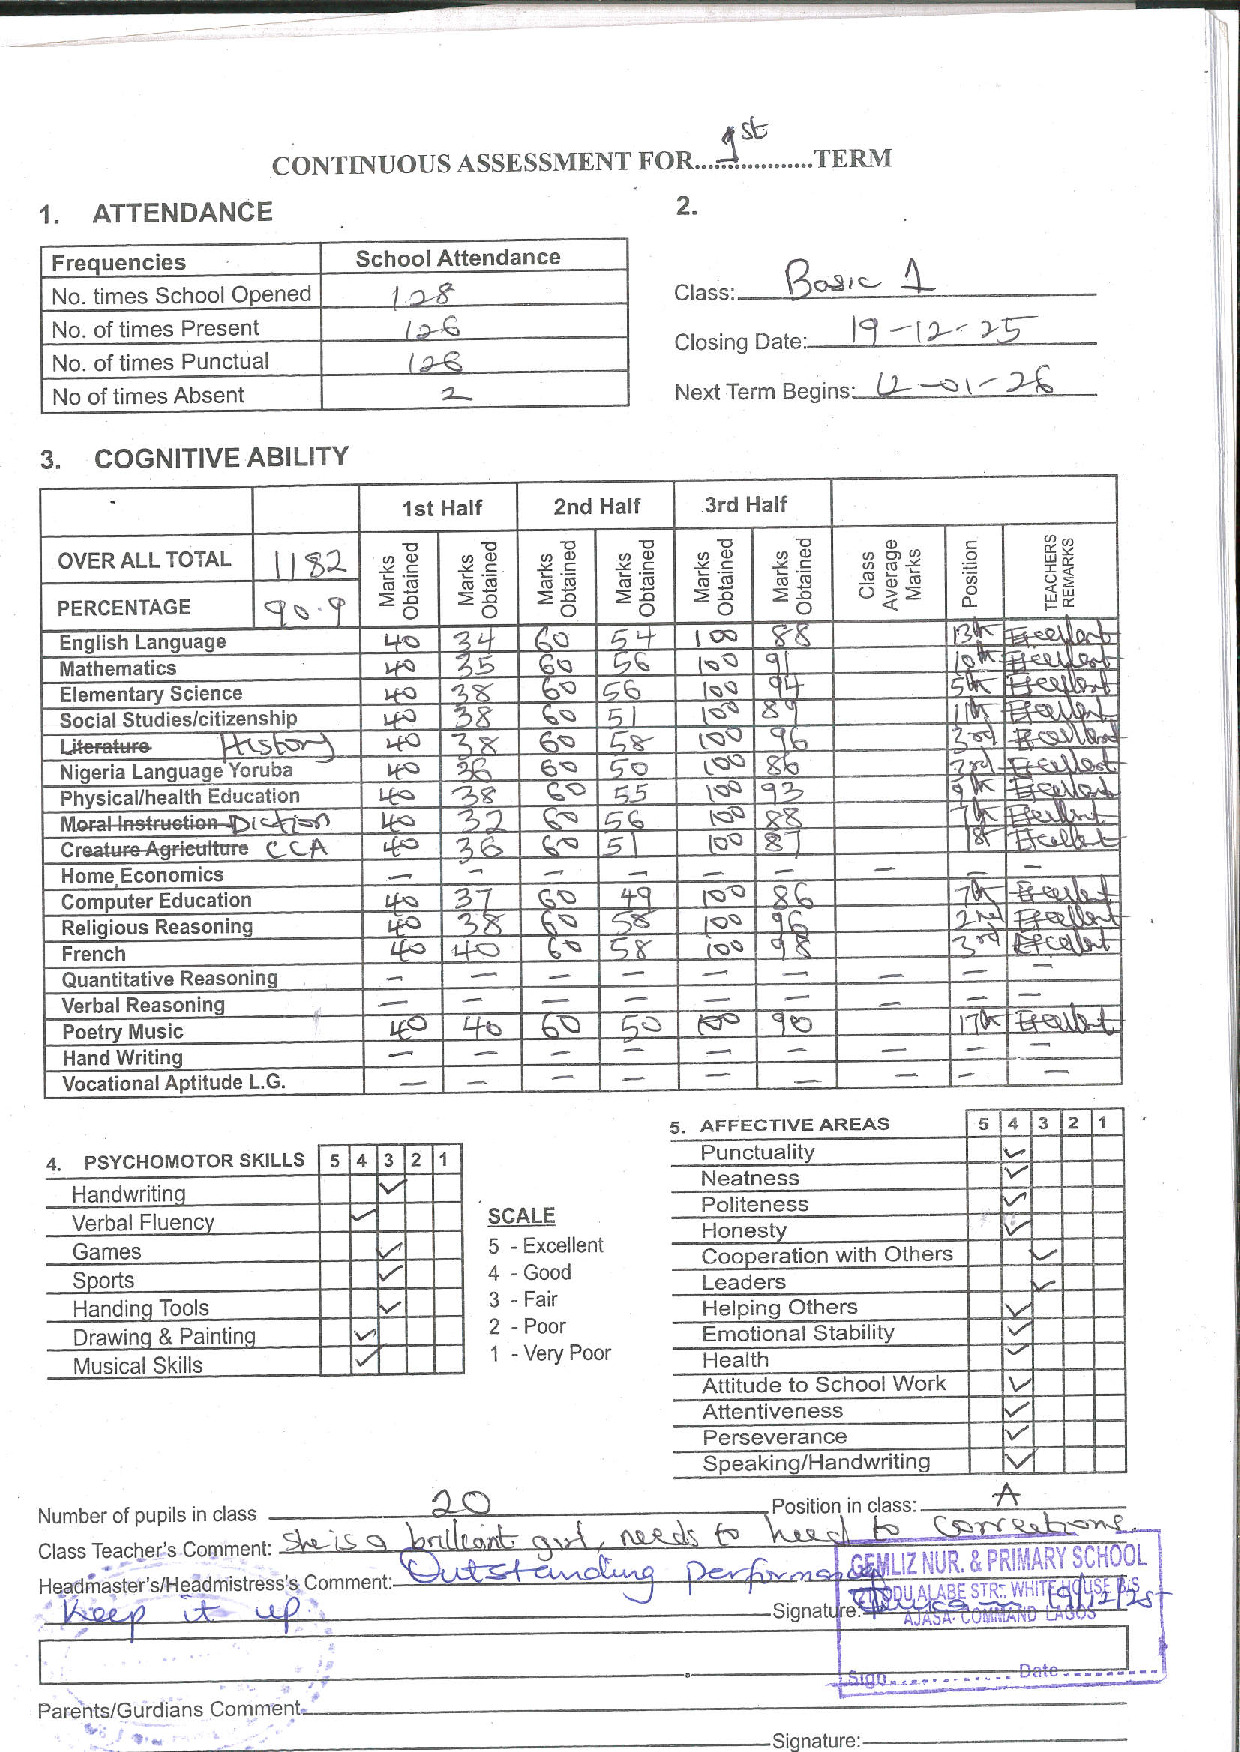 CONTINUOUS ASSESSMENT FOR 1st TERM
1. ATTENDANCE
Frequencies School Attendance
No. times School Opened 128
No. of times Present 126
No. of times Punctual 126
No of times Absent 2
2.
Class: Basic 1
Closing Date: 19-12-25
Next Term Begins: 12-01-26
3. COGNITIVE ABILITY
1st Half 2nd Half 3rd Half
OVER ALL TOTAL 1182
PERCENTAGE 90.9
Marks Obtained Marks Obtained Marks Obtained Marks Obtained Marks Obtained Marks Obtained Class Average Marks Position TEACHERS REMARKS
English Language 40 34 60 54 100 88 13th Excellent
Mathematics 40 35 60 56 100 91 10th Excellent
Elementary Science 40 38 60 56 100 94 5th Excellent
Social Studies/citizenship 40 38 60 51 100 89 11th Excellent
Literature History 40 38 60 58 100 96 3rd Excellent
Nigeria Language Yoruba 40 36 60 50 100 86 3rd Excellent
Physical/health Education 40 38 60 55 100 93 9th Excellent
Moral Instruction Diction 40 32 60 56 100 88 7th Excellent
Creature Agriculture CCA 40 36 60 51 100 87 Excellent
Home Economics — — — — — — — — —
Computer Education 40 37 60 49 100 86 7th Excellent
Religious Reasoning 40 38 60 58 100 96 2nd Excellent
French 40 40 60 58 100 98 3rd Excellent
Quantitative Reasoning — — — — — — — — —
Verbal Reasoning — — — — — — — — —
Poetry Music 40 40 60 50 100 90 17th Excellent
Hand Writing — — — — — — — — —
Vocational Aptitude L.G. — — — — — — — — —
4. PSYCHOMOTOR SKILLS 5 4 3 2 1
Handwriting ✓
Verbal Fluency ✓
Games ✓
Sports ✓
Handing Tools ✓
Drawing & Painting ✓
Musical Skills ✓
SCALE
5 - Excellent
4 - Good
3 - Fair
2 - Poor
1 - Very Poor
5. AFFECTIVE AREAS 5 4 3 2 1
Punctuality ✓
Neatness ✓
Politeness ✓
Honesty ✓
Cooperation with Others ✓
Leaders ✓
Helping Others ✓
Emotional Stability ✓
Health ✓
Attitude to School Work ✓
Attentiveness ✓
Perseverance ✓
Speaking/Handwriting ✓
Number of pupils in class 20 Position in class: A
Class Teacher's Comment: She is a brilliant girl, needs to heed to corrections.
Headmaster's/Headmistress's Comment: Outstanding performance
Keep it up. Signature: 19/12/25
GEMLIZ NUR. & PRIMARY SCHOOL
ALABE STR. WHITE HOUSE B/S
AJASA COMMAND LAGOS
Sign Date
Parents/Gurdians Comment
Signature: